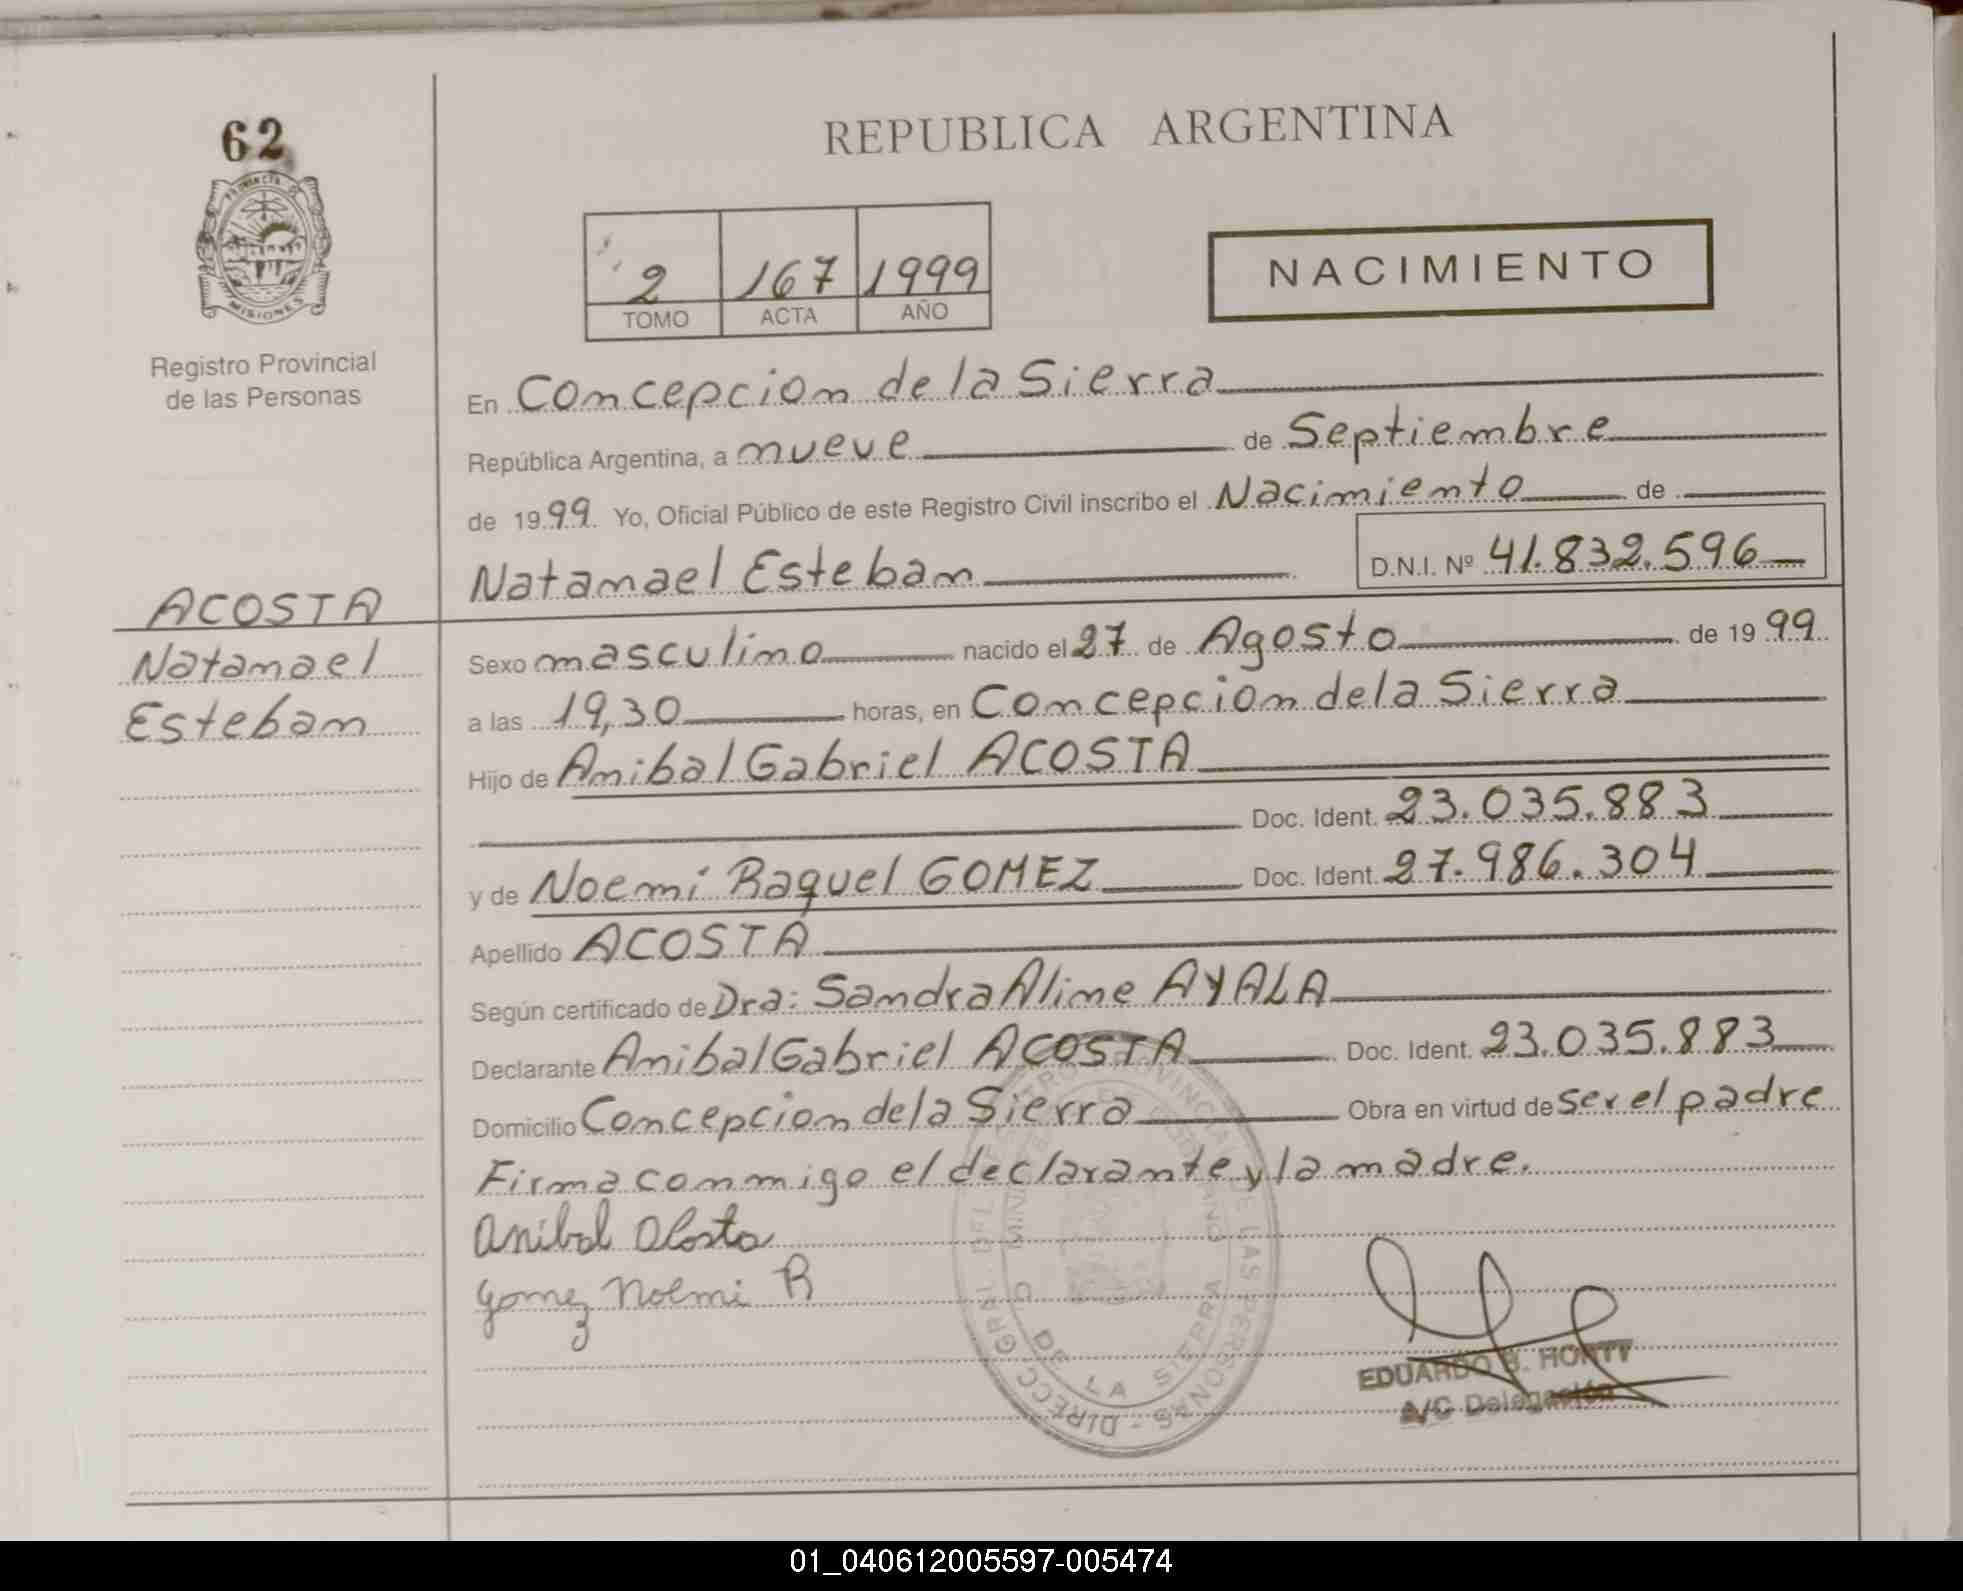 62
REPUBLICA ARGENTINA
PROVINCIA DE
MISIONES
2 167 1999
TOMO ACTA AÑO
NACIMIENTO
Registro Provincial
de las Personas
En Concepcion de la Sierra
República Argentina, a nueve de Septiembre
de 1999. Yo, Oficial Público de este Registro Civil inscribo el Nacimiento de
Natanael Esteban D.N.I. Nº 41.832.596
ACOSTA
Natanael
Esteban
Sexo masculino nacido el 27 de Agosto de 1999
a las 19,30 horas, en Concepcion de la Sierra
Hijo de Anibal Gabriel ACOSTA
Doc. Ident. 23.035.883
y de Noemi Raquel GOMEZ Doc. Ident. 27.986.304
Apellido ACOSTA
Según certificado de Dra: Sandra Aline AYALA
Declarante Anibal Gabriel ACOSTA Doc. Ident. 23.035.883
Domicilio Concepcion de la Sierra Obra en virtud de ser el padre
Firma conmigo el declarante y la madre.
Anibal Acosta
Gomez Noemi R
DIRECC GRAL DEL REGISTRO PROVINCIAL DE LAS PERSONAS
DE LA SIERRA
EDUARDO B.
A/C Delegación
01_040612005597-005474